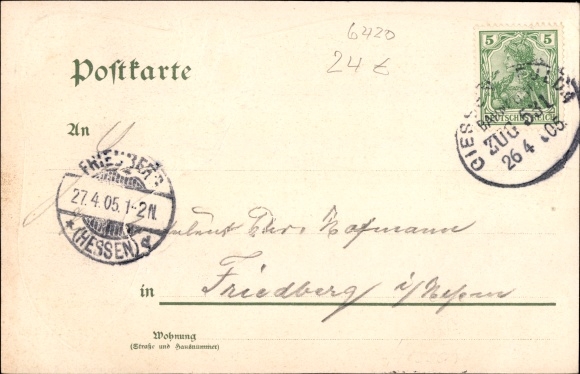 6420
24 €
Postkarte
5
DEUTSCHES REICH
GIESSEN FULDA
BAHNPOST
ZUG 531
26 4 05
An
FRIEDBERG
27.4.05.1-2N.
(HESSEN)
Hofmann
in Friedberg i/Hessen
Wohnung
(Straße und Hausnummer)